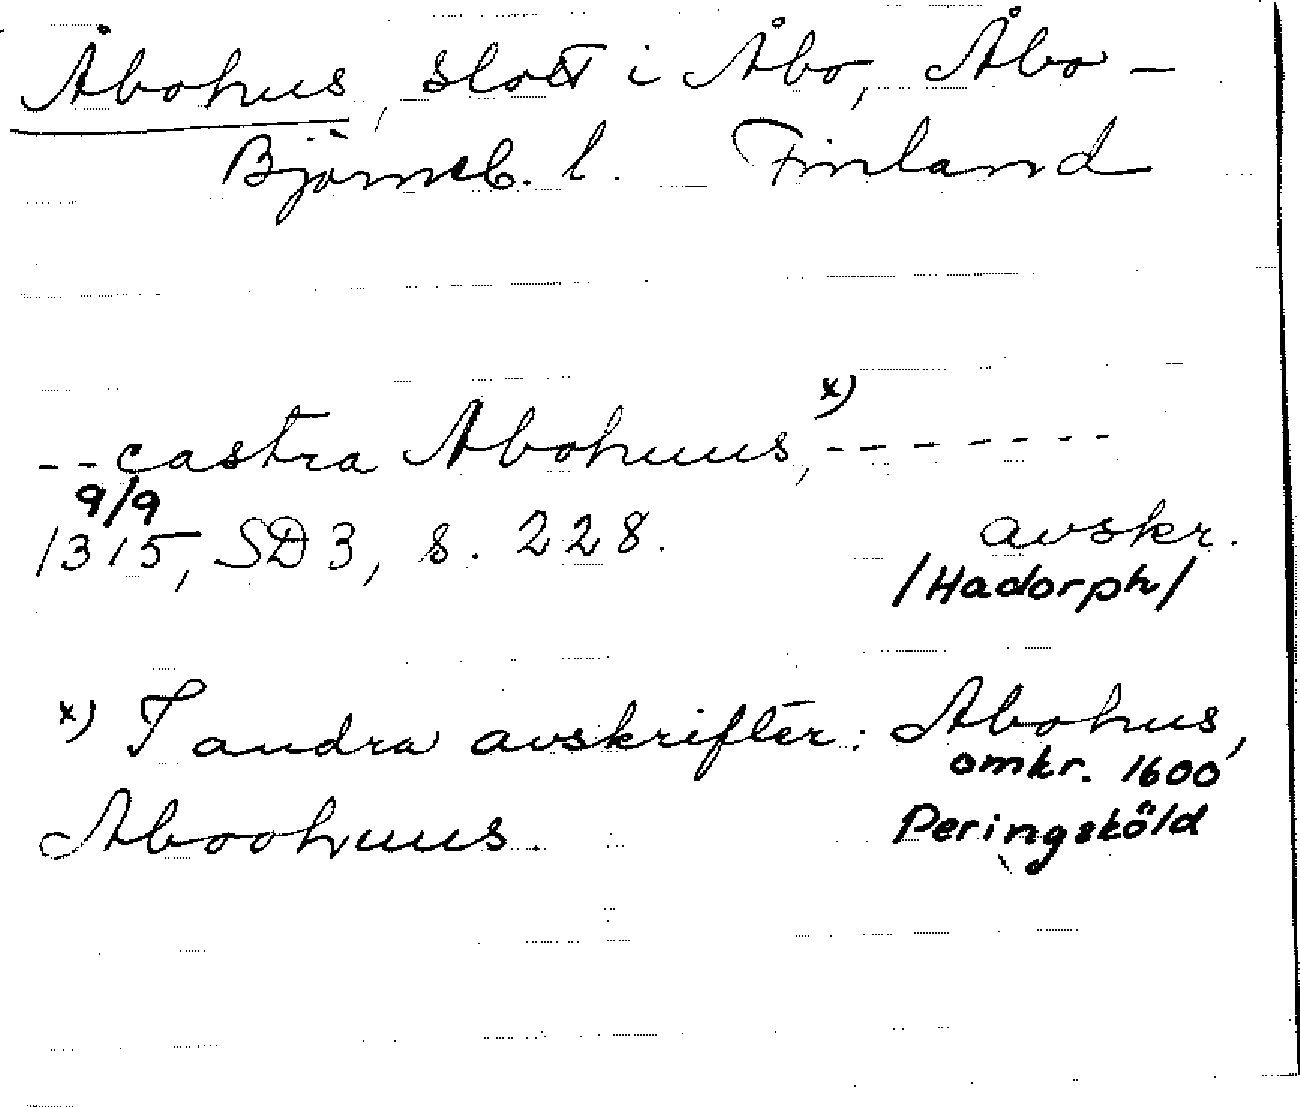 Åbohus, slott i Åbo, Åbo-
Björneb. l. Finland
--castra Abohuus,x) -------
9/9
1315, SD 3, s. 228. avskr.
/Hadorph/
x) I andra avskrifter: Abohus,
omkr. 1600
Aboohuus. Peringsköld